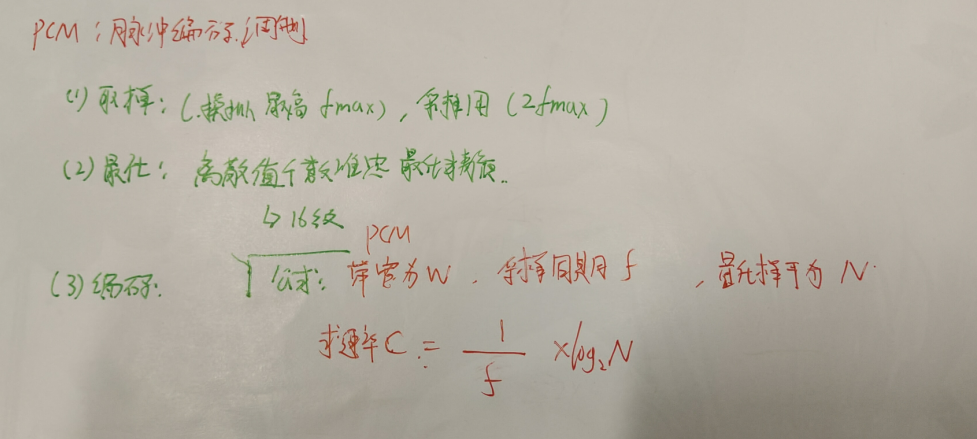 PCM:脉冲编码调制
(1)取样:(模拟 最高 fmax),采样用(2fmax)
(2)量化:离散值个数决定 量化精度..
↳16级
(3)编码: 公式: PCM 带宽为W,采样周期 f ,量化样本为 N.
求速率C = 1/f ×log₂N